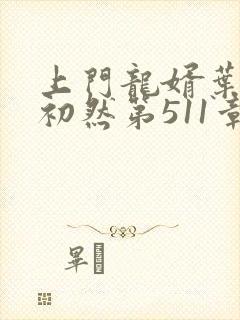 上門龍婿葉
初然第511章
畢